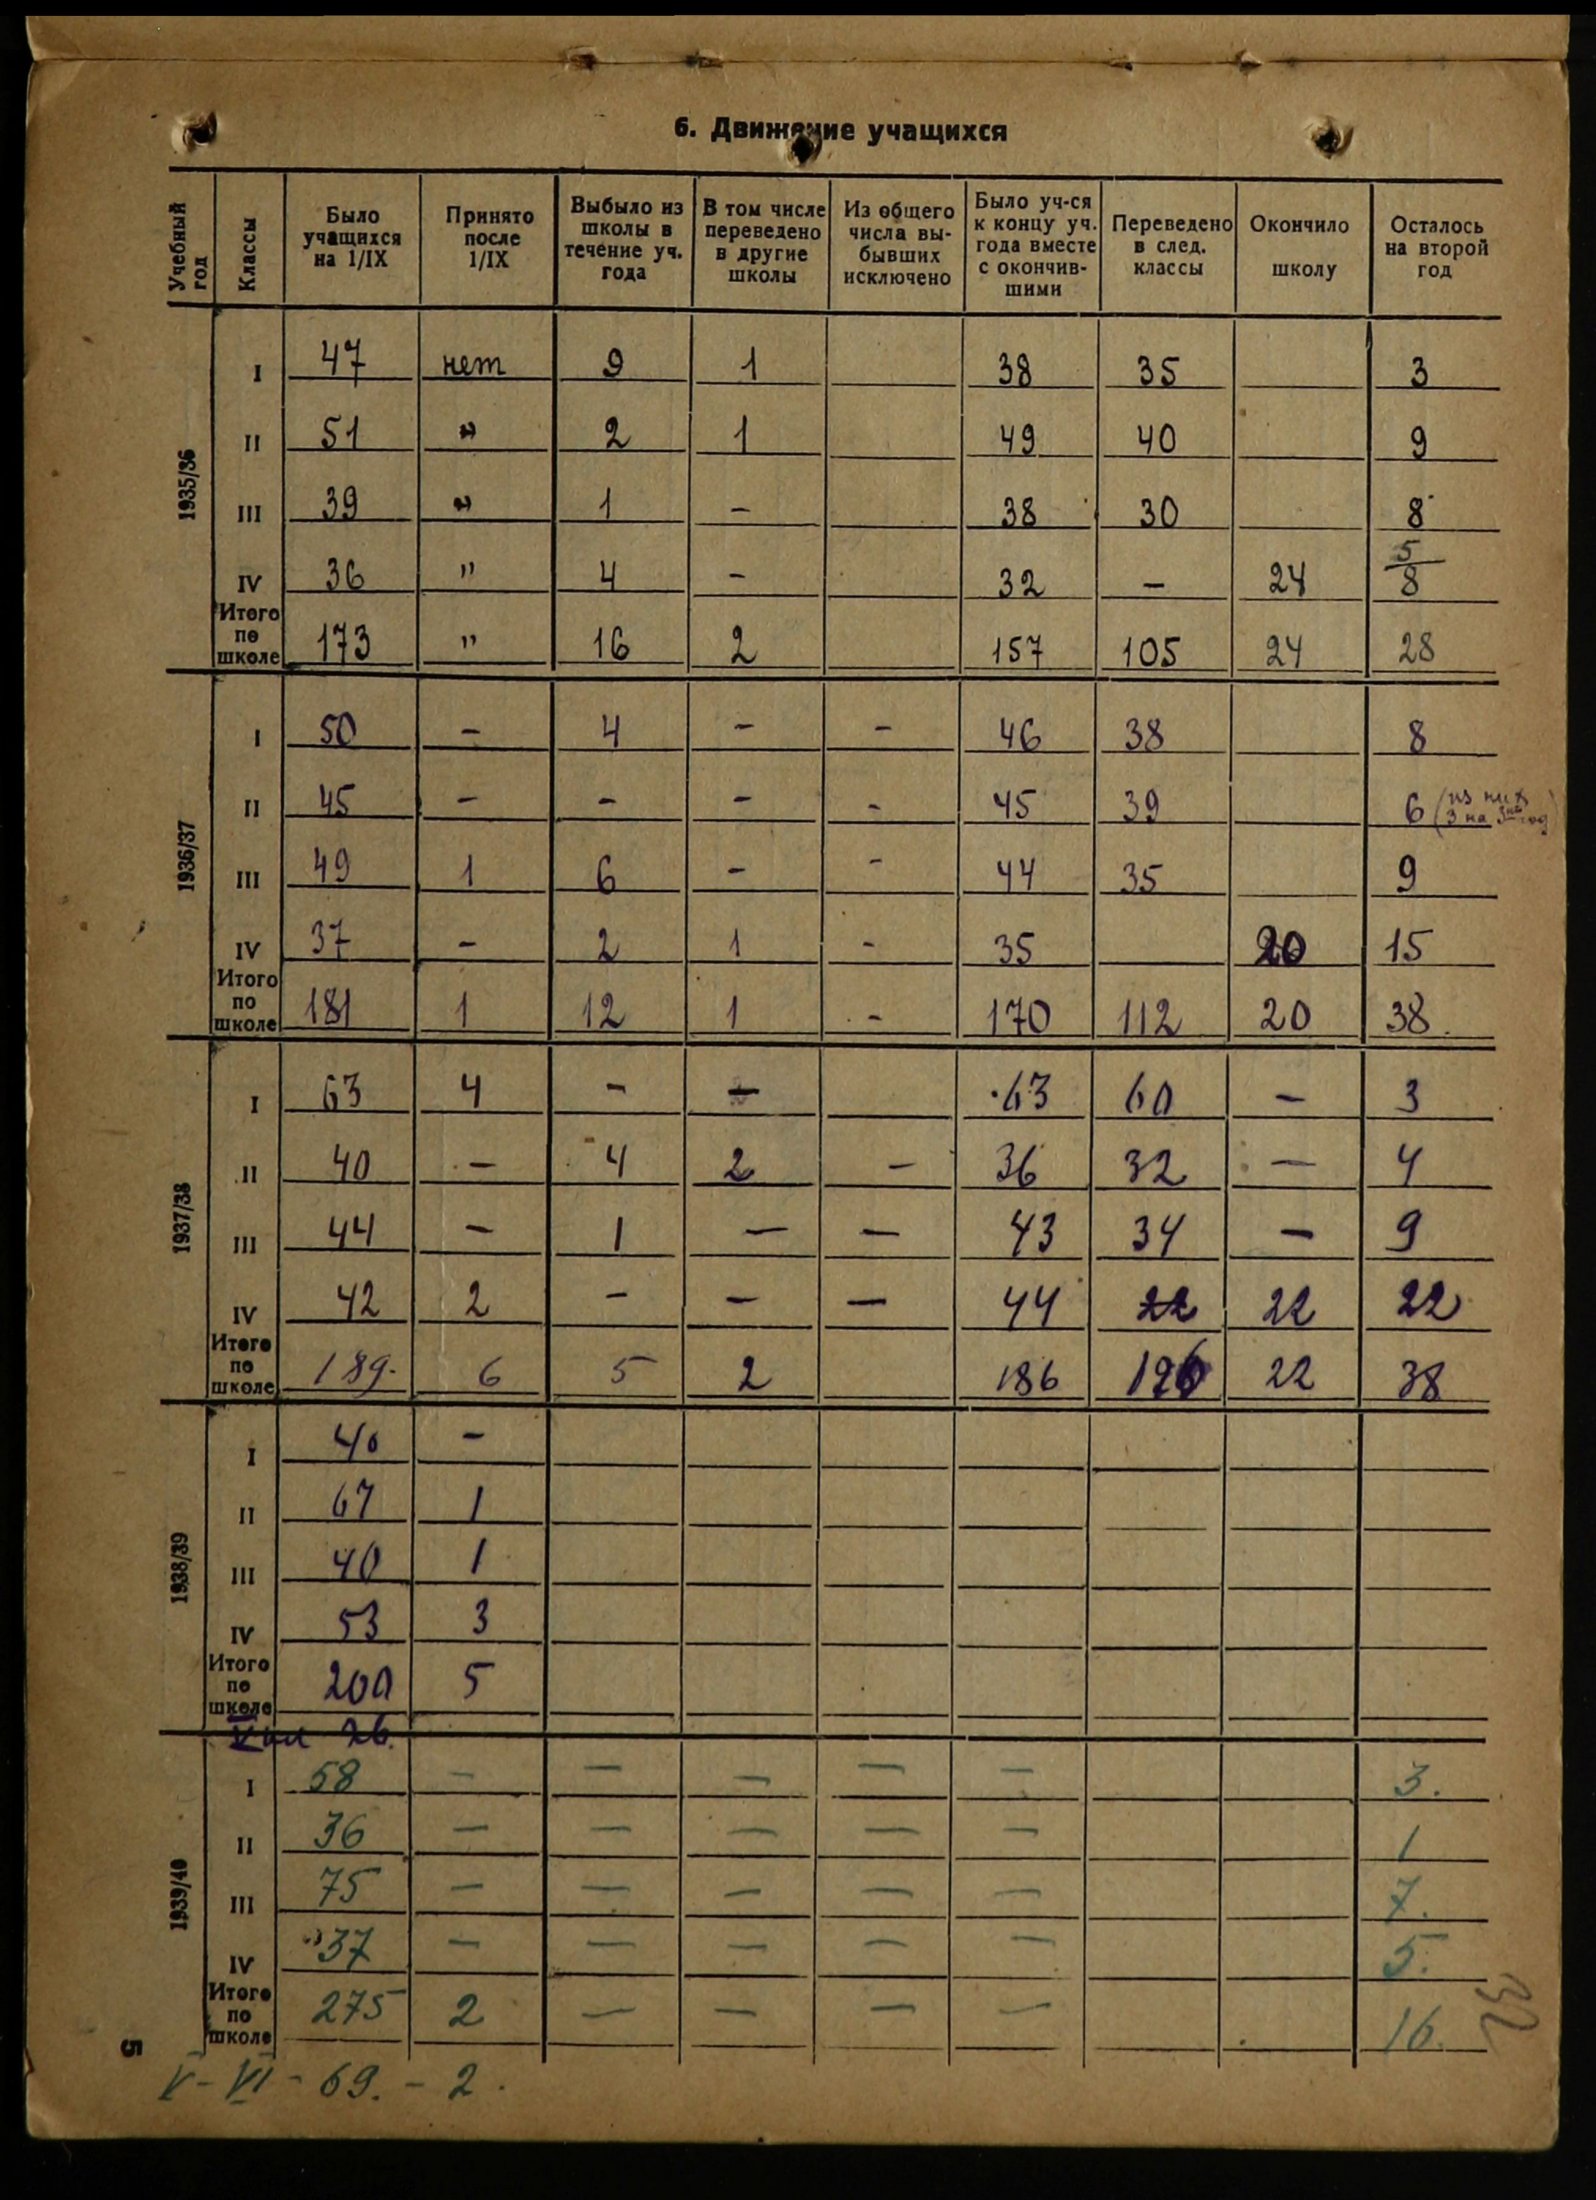 6. Движение учащихся
Учебный год | Классы | Было учащихся на 1/IX | Принято после 1/IX | Выбыло из школы в течение уч. года | В том числе переведено в другие школы | Из общего числа вы- бывших исключено | Было уч-ся к концу уч. года вместе с окончив- шими | Переведено в след. классы | Окончило школу | Осталось на второй год
1935/36
I 47 нет 9 1 38 35 3
II 51 " 2 1 49 40 9
III 39 " 1 - 38 30 8
IV 36 " 4 - 32 - 24 5/8
Итого по школе 173 " 16 2 157 105 24 28
1936/37
I 50 - 4 - - 46 38 8
II 45 - - - - 45 39 6 (из них 3 на 3ий год)
III 49 1 6 - - 44 35 9
IV 37 - 2 1 - 35 20 15
Итого по школе 181 1 12 1 - 170 112 20 38
1937/38
I 63 4 - - 63 60 - 3
II 40 - 4 2 - 36 32 - 4
III 44 - 1 - - 43 34 - 9
IV 42 2 - - - 44 22 22 22
Итого по школе 189. 6 5 2 186 126 22 38
1938/39
I 40 -
II 67 1
III 40 1
IV 53 3
Итого по школе 200 5
V кл 26.
1939/40
I 58 - - - - - 3.
II 36 - - - - - 1
III 75 - - - - - 7.
IV 37 - - - - - 5.
Итого по школе 275 2 - - - - 16.
5
V - VI - 69. - 2.